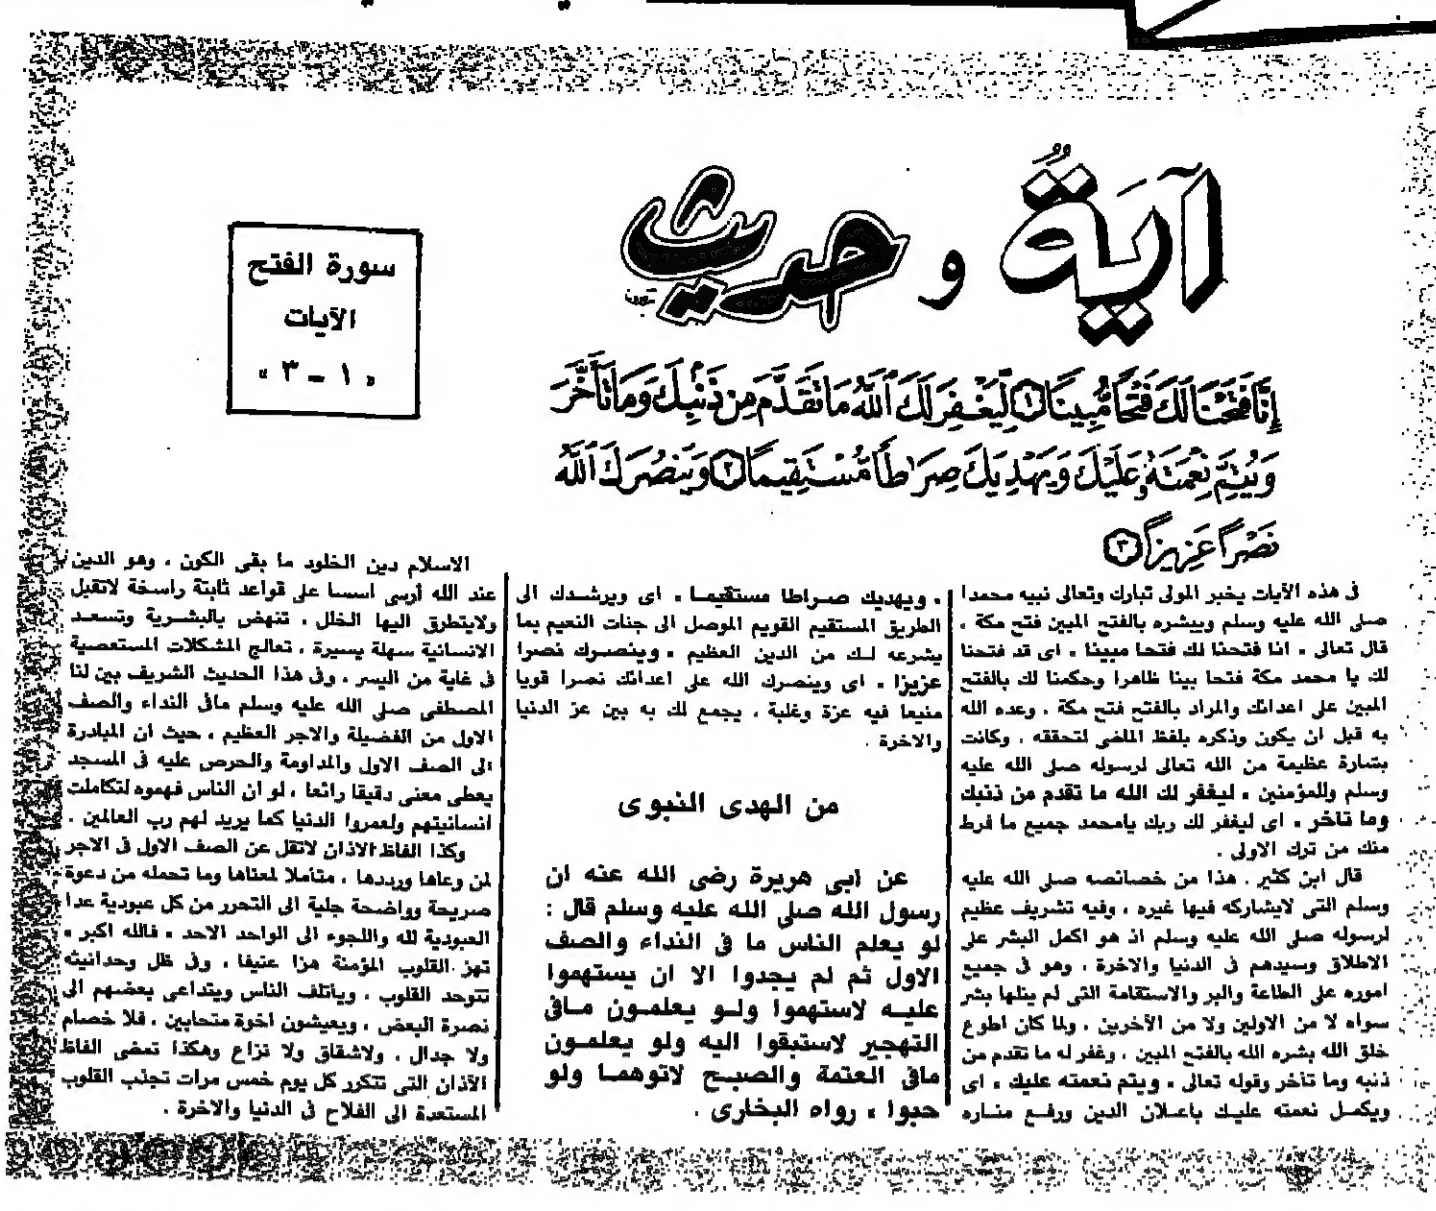 آيةٌ و حديث
سورة الفتح
الآيات
« ١ - ٣ »
إِنَّا فَتَحْنَا لَكَ فَتْحًا مُّبِينًا ١ لِّيَغْفِرَ لَكَ ٱللَّهُ مَا تَقَدَّمَ مِن ذَنۢبِكَ وَمَا تَأَخَّرَ
وَيُتِمَّ نِعْمَتَهُۥ عَلَيْكَ وَيَهْدِيَكَ صِرَٰطًا مُّسْتَقِيمًا ٢ وَيَنصُرَكَ ٱللَّهُ
نَصْرًا عَزِيزًا ٣
فى هذه الآيات يخبر المولى تبارك وتعالى نبيه محمدا
صلى الله عليه وسلم ويبشره بالفتح المبين فتح مكة .
قال تعالى « انا فتحنا لك فتحا مبينا » اى قد فتحنا
لك يا محمد مكة فتحا بينا ظاهرا وحكمنا لك بالفتح
المبين على اعدائك والمراد بالفتح فتح مكة ، وعده الله
به قبل ان يكون وذكره بلفظ الماضى لتحققه ، وكانت
بشارة عظيمة من الله تعالى لرسوله صلى الله عليه
وسلم وللمؤمنين « ليغفر لك الله ما تقدم من ذنبك
وما تاخر » اى ليغفر لك ربك يامحمد جميع ما فرط
منك من ترك الاولى .
قال ابن كثير ، هذا من خصائصه صلى الله عليه
وسلم التى لايشاركه فيها غيره ، وفيه تشريف عظيم
لرسوله صلى الله عليه وسلم اذ هو اكمل البشر على
الاطلاق وسيدهم فى الدنيا والاخرة ، وهو فى جميع
اموره على الطاعة والبر والاستقامة التى لم ينلها بشر
سواه لا من الاولين ولا من الآخرين ، ولما كان اطوع
خلق الله بشره الله بالفتح المبين ، وغفر له ما تقدم من
ذنبه وما تاخر وقوله تعالى « ويتم نعمته عليك » اى
ويكمل نعمته عليك باعلان الدين ورفع مناره
« ويهديك صراطا مستقيما » اى ويرشدك الى
الطريق المستقيم القويم الموصل الى جنات النعيم بما
يشرعه لك من الدين العظيم « وينصرك نصرا
عزيزا » اى وينصرك الله على اعدائك نصرا قويا
منيعا فيه عزة وغلبة ، يجمع لك به بين عز الدنيا
والاخرة .
من الهدى النبوى
عن ابى هريرة رضى الله عنه ان
رسول الله صلى الله عليه وسلم قال :
لو يعلم الناس ما فى النداء والصف
الاول ثم لم يجدوا الا ان يستهموا
عليه لاستهموا ولو يعلمون مافى
التهجير لاستبقوا اليه ولو يعلمون
مافى العتمة والصبح لاتوهما ولو
حبوا » رواه البخارى .
الاسلام دين الخلود ما بقى الكون ، وهو الدين
عند الله أرسى اسسا على قواعد ثابتة راسخة لاتقبل
ولايتطرق اليها الخلل ، تنهض بالبشرية وتسعد
الانسانية سهلة يسيرة ، تعالج المشكلات المستعصية
فى غاية من اليسر ، وفى هذا الحديث الشريف بين لنا
المصطفى صلى الله عليه وسلم مافى النداء والصف
الاول من الفضيلة والاجر العظيم ، حيث ان المبادرة
الى الصف الاول والمداومة والحرص عليه فى المسجد
يعطى معنى دقيقا رائعا ، لو ان الناس فهموه لتكاملت
انسانيتهم ولعمروا الدنيا كما يريد لهم رب العالمين .
وكذا الفاظ الاذان لاتقل عن الصف الاول فى الاجر
لمن وعاها ورددها ، متأملا لمعناها وما تحمله من دعوة
صريحة وواضحة جلية الى التحرر من كل عبودية عدا
العبودية لله واللجوء الى الواحد الاحد « فالله اكبر »
تهز القلوب المؤمنة هزا عنيفا ، وفى ظل وحدانيته
تتوحد القلوب ، ويأتلف الناس ويتداعى بعضهم الى
نصرة البعض ، ويعيشون اخوة متحابين ، فلا خصام
ولا جدال ، ولاشقاق ولا نزاع وهكذا تمضى الفاظ
الآذان التى تتكرر كل يوم خمس مرات تجذب القلوب
المستعدة الى الفلاح فى الدنيا والاخرة .